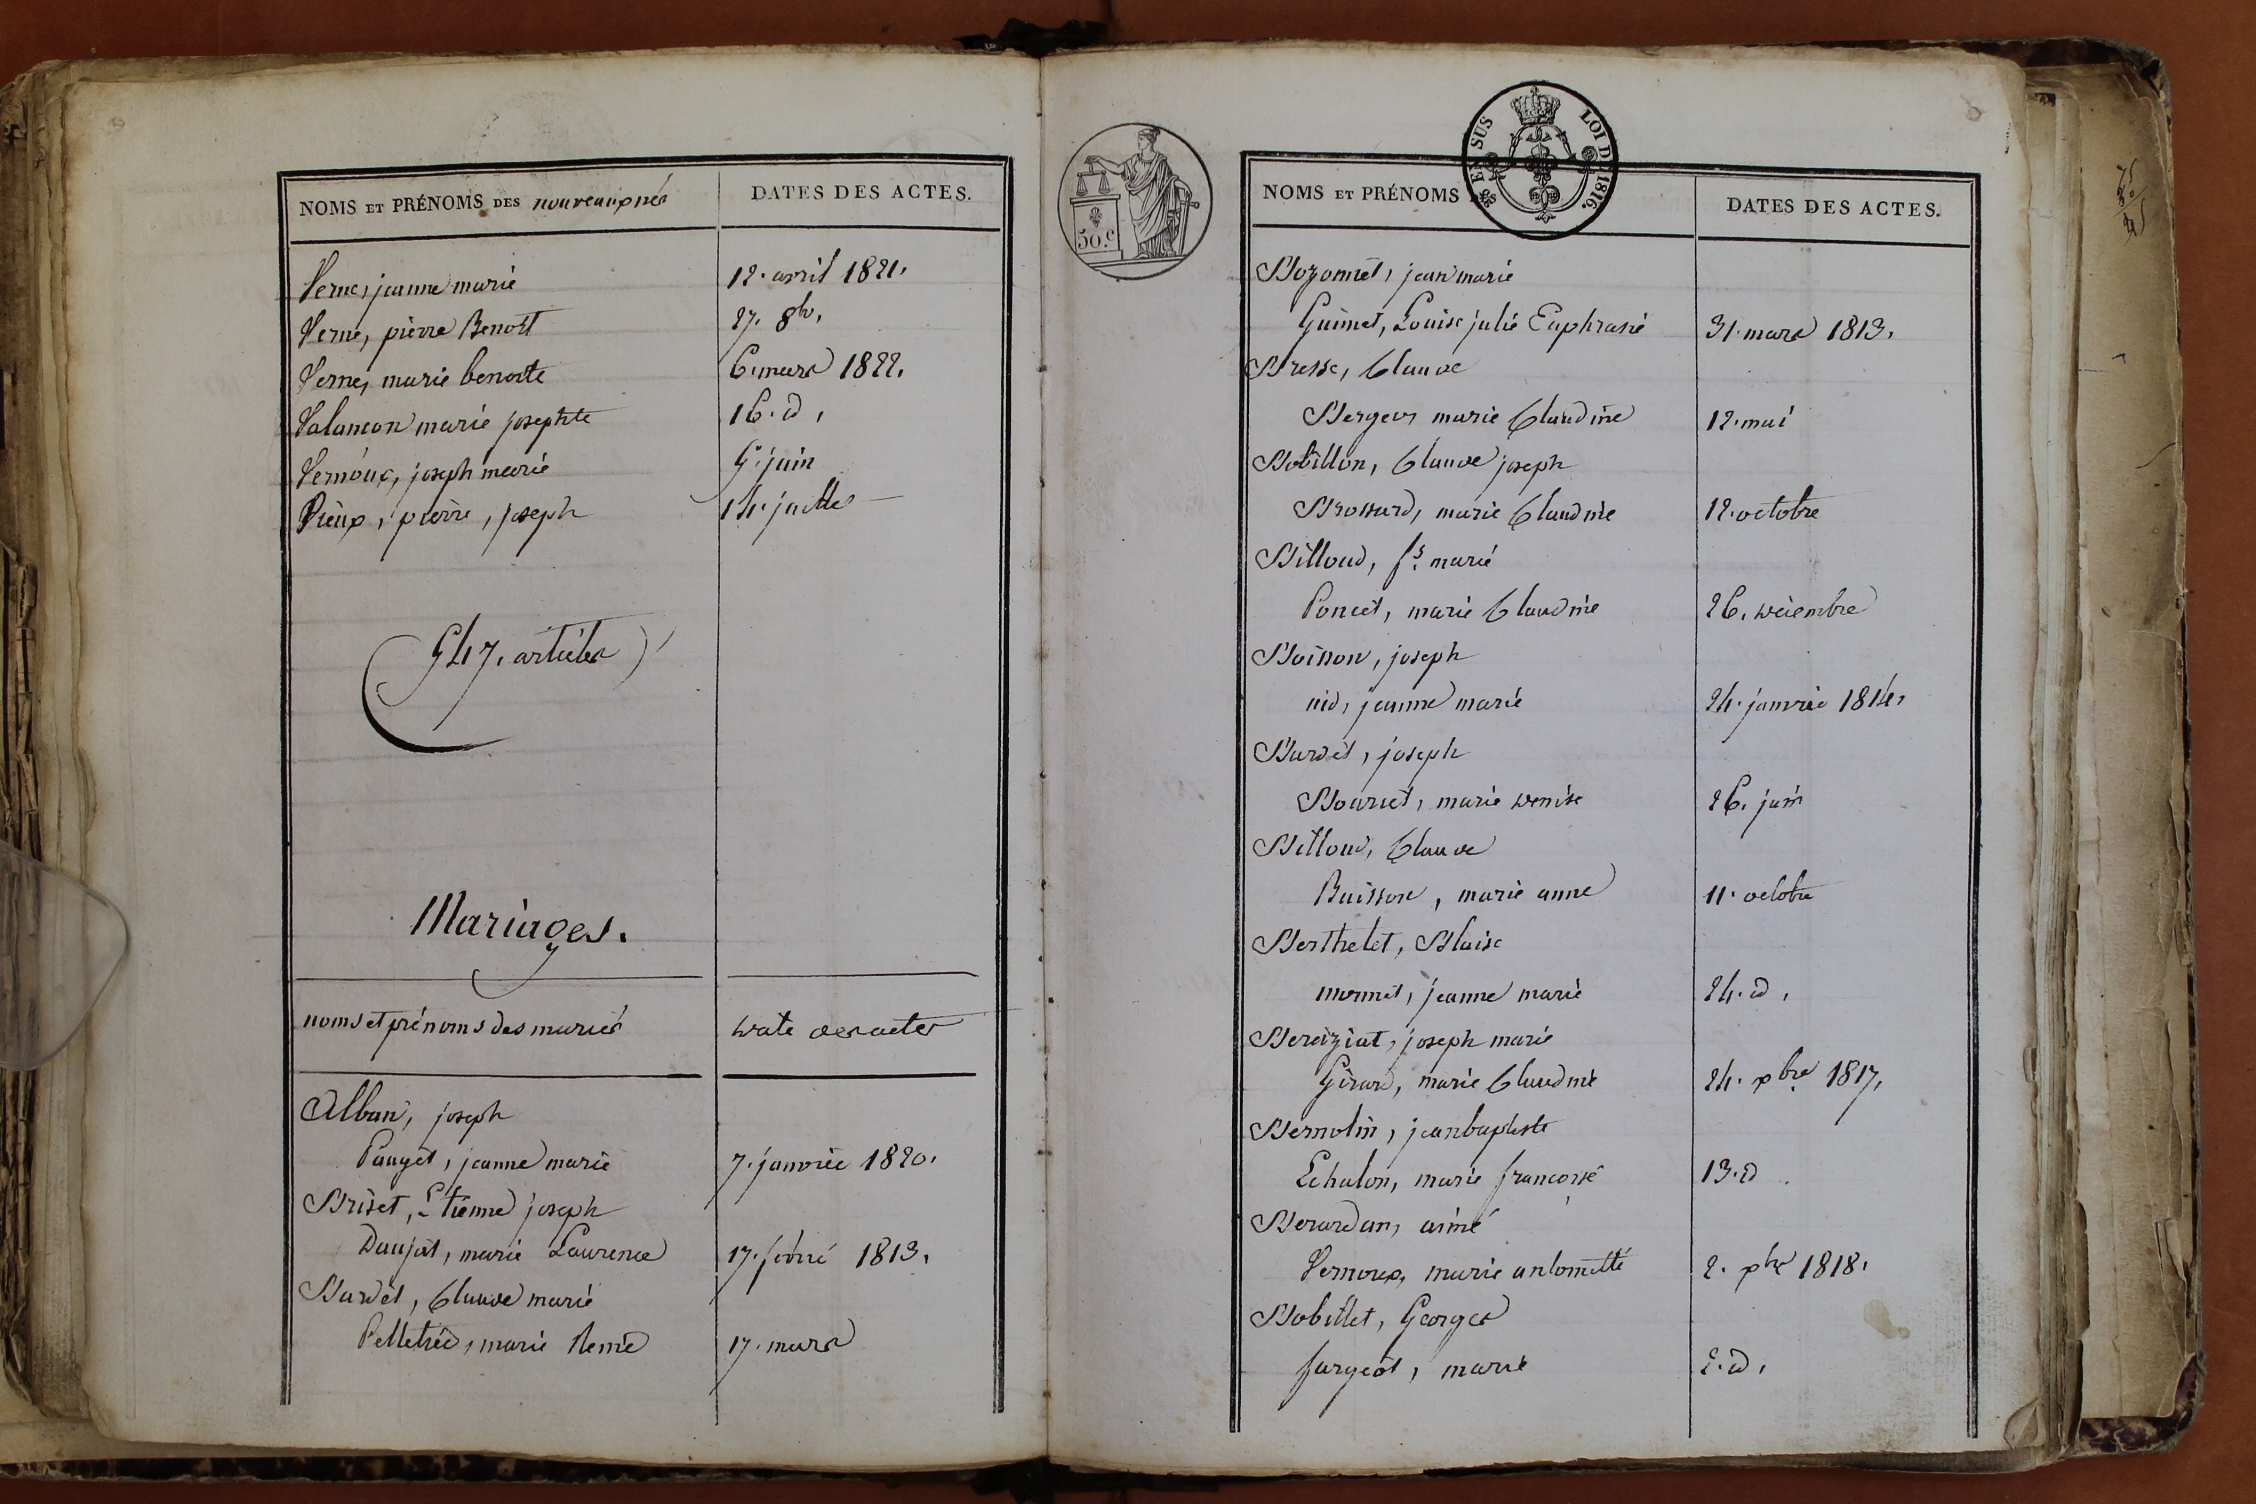 NOMS ET PRÉNOMS DES nouveaux nés
DATES DES ACTES.
Verne, jeanne marie 12. avril 1821.
Verne, pierre Benoit 27. 8bre,
Verne, marie benoite 6. mars 1822.
Valancon marie josephte 16. d.
Vernoux, joseph marie 5. juin
Vieux, pierre, joseph 14. juillet
547. articles
Mariages.
noms et prénoms des mariés date des actes
Alban, joseph
Pauget, jeanne marie 7. janvier 1820.
Briset, Etienne joseph
Daujat, marie Laurence 17. février 1813.
Burdet, Claude marie
Pelletier, marie Renée 17. mars
50.c
EN SUS LOI DE 1816.
NOMS ET PRÉNOMS DES
DATES DES ACTES.
Bozonnet, jean marie
Guimet, Louise julie Euphrasie 31. mars 1813.
Bresse, Claude
Berger, marie Claudine 12. mai
Bobillon, Claude joseph
Brossard, marie Claudine 12. octobre
Billoud, fs. marie
Poncet, marie Claudine 26. décembre
Boisson, joseph
nid, jeanne marie 24. janvier 1814.
Burdet, joseph
Bourcet, marie denise 26. juin
Billoud, Claude
Buisson, marie anne 11. octobre
Berthelet, Blaise
monnet, jeanne marie 24. d.
Bereiziat, joseph marie
Girard, marie Claudine 24. xbre 1817.
Bernolin, jean baptiste
Echalon, marie francoise 13. d
Berardan, aimé
Vernoux, marie antoinette 2. xbre 1818.
Bobillet, Georges
fargeot, marie 2. d.